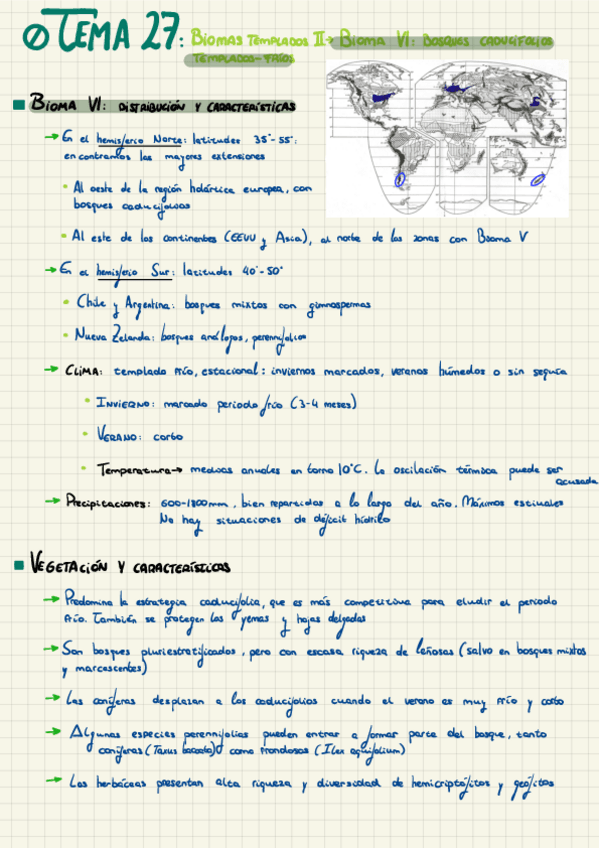 TEMA 27: BIOMAS TEMPLADOS II → BIOMA VI: BOSQUES CADUCIFOLIOS
TEMPLADOS-FRÍOS
BIOMA VI: DISTRIBUCIÓN Y CARACTERÍSTICAS
→ En el hemisferio Norte: latitudes 35°-55°:
encontramos las mayores extensiones
• Al oeste de la región holártica europea, con
bosques caducifolios
• Al este de los continentes (EEUU y Asia), al norte de las zonas con Bioma V
→ En el hemisferio Sur: latitudes 40°-50°
• Chile y Argentina: bosques mixtos con gimnospermas
• Nueva Zelanda: bosques análogos, perennifolios
→ CLIMA: templado frío, estacional: inviernos marcados, veranos húmedos o sin sequía
• INVIERNO: marcado periodo frío (3-4 meses)
• VERANO: corto
• Temperatura → medias anuales en torno 10°C. La oscilación térmica puede ser
acusada
→ Precipitaciones: 600-1800mm, bien repartidas a lo largo del año. Máximos estivales
No hay situaciones de déficit hídrico
VEGETACIÓN Y CARACTERÍSTICAS
→ Predomina la estrategia caducifolia, que es más competitiva para eludir el periodo
frío. También se protegen las yemas y hojas delgadas
→ Son bosques pluriestratificados, pero con escasa riqueza de leñosas (salvo en bosques mixtos
y marcescentes)
→ Las coníferas desplazan a los caducifolios cuando el verano es muy frío y corto
→ Algunas especies perennifolias pueden entrar a formar parte del bosque, tanto
coníferas (Taxus baccata) como frondosas (Ilex aquifolium)
→ Las herbáceas presentan alta riqueza y diversidad de hemicriptófitos y geófitos